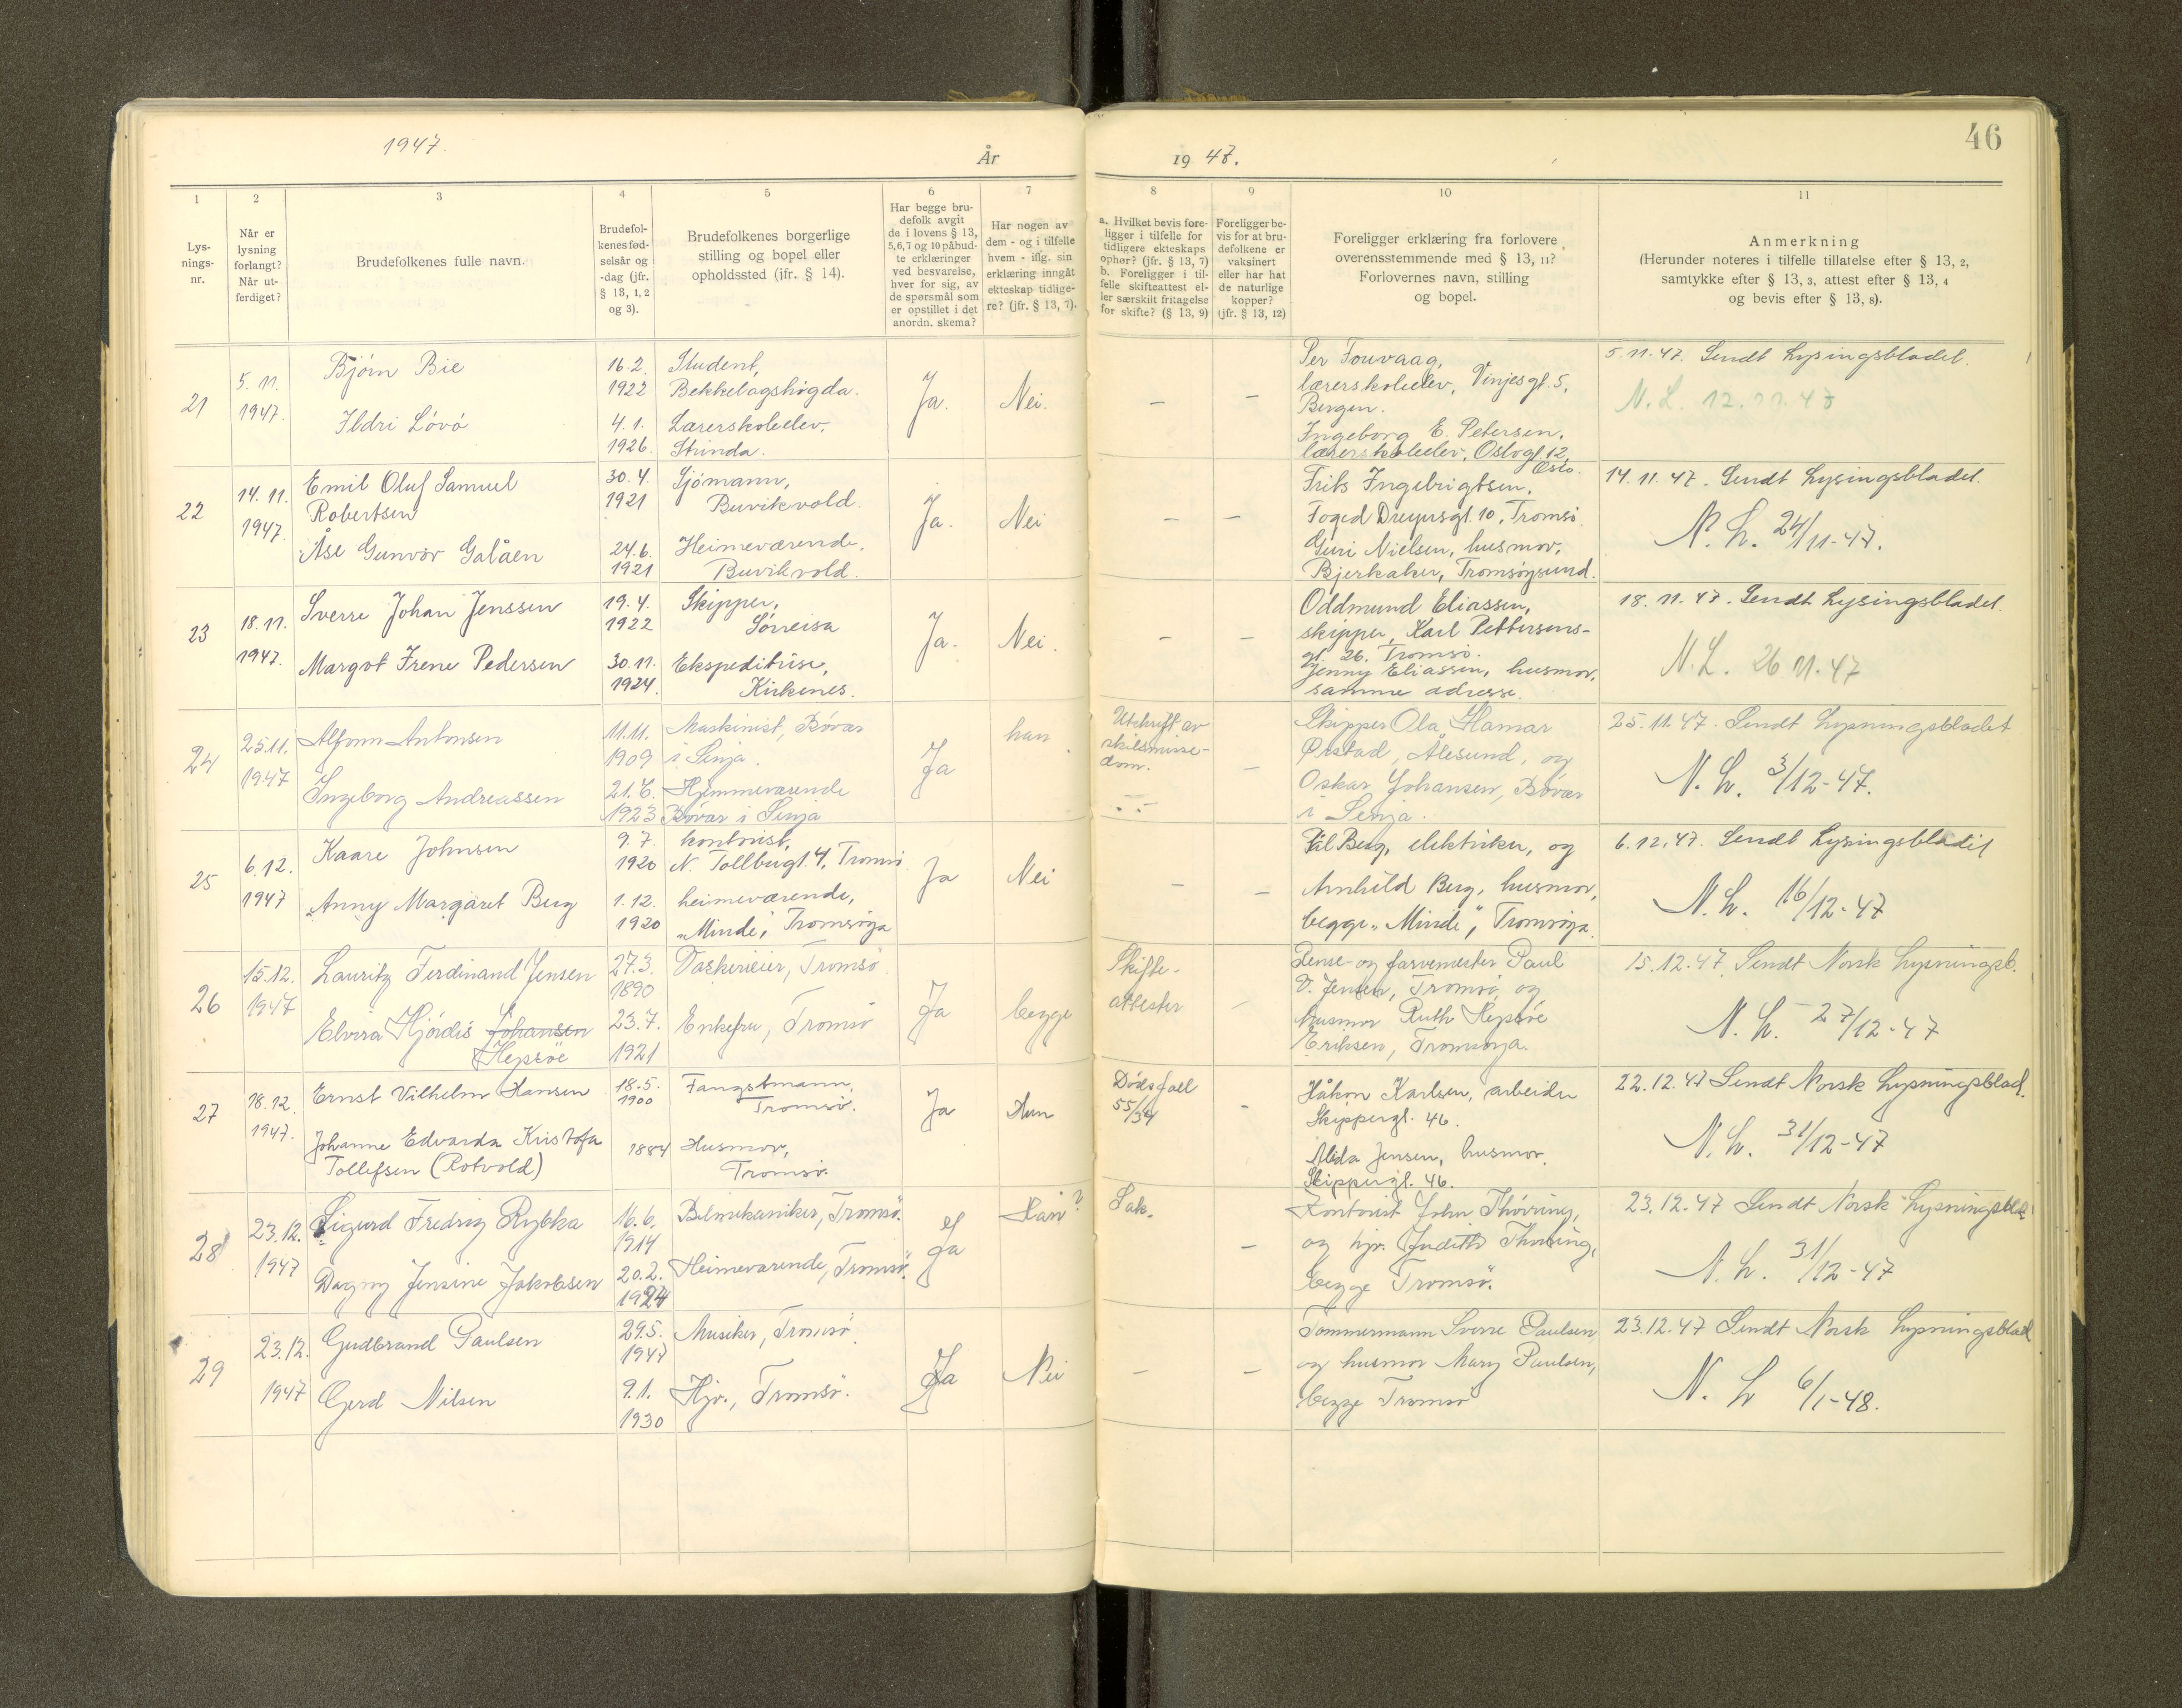 1947.
År
19 47.
46
1
2
3
4
5
6
7
8
9
10
11
Lys-
nings-
nr.
Når er
lysning
forlangt?
Når ut-
ferdiget?
Brudefolkenes fulle navn.
Brudefol-
kenes fød-
selsår og
-dag (jfr.
§ 13, 1, 2
og 3).
Brudefolkenes borgerlige
stilling og bopel eller
opholdssted (jfr. § 14).
Har begge bru-
defolk avgit
de i lovens § 13,
5,6,7 og 10 påbud-
te erklæringer
ved besvarelse,
hver for sig, av
de spørsmål som
er opstillet i det
anordn. skema?
Har nogen av
dem - og i tilfelle
hvem - iflg. sin
erklæring inngåt
ekteskap tidlige-
re? (jfr. § 13, 7).
a. Hvilket bevis fore-
ligger i tilfelle for
tidligere ekteskaps
ophør? (jfr. § 13, 7)
b. Foreligger i til-
felle skifteattest el-
ler særskilt fritagelse
for skifte? (§ 13, 9)
Foreligger be-
vis for at bru-
defolkene er
vaksinert
eller har hat
de naturlige
kopper?
(jfr. § 13, 12)
Foreligger erklæring fra forlovere
overensstemmende med § 13, 11?
Forlovernes navn, stilling
og bopel.
Anmerkning
(Herunder noteres i tilfelle tillatelse efter § 13, 2,
samtykke efter § 13, 3, attest efter § 13, 4
og bevis efter § 13, 8).
21
5. 11.
1947.
Bjørn Bie
Ildri Løvø
16.2.
1922
4. 1.
1926.
Student,
Bekkelagshøgda.
Lærerskoleelev,
Strinda.
Ja.
Nei.
—
—
Per Fouvaag,
lærerskoleelev, Vinjesgt. 5,
Bergen.
Ingeborg E. Petersen,
lærerskoleelev, Oslogt 12,
Oslo.
5.11.47. Sendt Lysingsbladet.
N. L. 12.11.47
22
14. 11.
1947.
Emil Oluf Samuel
Robertsen
Åse Gunvor Galåen
30. 4.
1921
24.6.
1921
Sjømann,
Buvikvold.
Heimeværende,
Buvikvold.
Ja.
Nei
—
—
Frits Ingebrigtsen,
Foged Dreyersgt. 10, Tromsø.
Guri Nielsen, husmor,
Bjerkaker, Tromsøysund.
14. 11. 47. Sendt Lysingsbladet.
N. L. 24/11-47.
23
18. 11.
1947.
Sverre Johan Jenssen
Margot Irene Pedersen
19. 4.
1922
30. 11.
1924.
Skipper,
Sørreisa
Ekspeditrise,
Kirkenes.
Ja.
Nei.
—
—
Oddmund Eliassen,
skipper, Karl Pettersens-
gt. 26. Tromsø.
Jenny Eliassen, husmor,
samme adresse.
18. 11. 47. Sendt Lysingsbladet.
N. L. 26 11. 47
24
25.11.
1947
Alfonn Antonsen
Ingeborg Andreassen
11.11.
1909
21. 6.
1923
Maskinist, Bøvær
i Senja.
Hjemmeværende
Bøvær i Senja
Ja
han
Utskrift av
skilsmisse-
dom.
—
Skipper Ola Hamar
Ørstad, Ålesund, og
Oskar Johansen, Bøvær
i Senja.
25. 11. 47. Sendt Lysningsbladet
N. L. 3/12-47.
25
6. 12.
1947
Kaare Johnsen
Anny Margaret Berg
9. 7.
1920
1. 12.
1920
kontorist,
N. Tollbugt. 4, Tromsø
heimeværende,
„Minde", Tromsøya
Ja
Nei
—
—
Pål Berg, elektriker, og
Arnhild Berg, husmor,
begge „Minde", Tromsøya.
6. 12. 47. Sendt Lysingsbladet
N. L. 16/12-47
26
15.12.
1947
Lauritz Ferdinand Jensen
Elvira Hjørdis Johansen
Hepsøe
27.3.
1890
23. 7.
1921
Vaskerieier, Tromsø
Enkefru, Tromsø
Ja
begge
Skifte-
attester
—
Rense- og farvemester Paul
V. Jensen, Tromsø, og
husmor Ruth Hepsøe
Eriksen, Tromsøya.
15. 12. 47. Sendt Norsk Lysningsb.
N. L. 27/12-47
27
18. 12.
1947.
Ernst Vilhelm Hansen
Johanne Edvarda Kristofa
Tollefsen (Rotvold)
18. 5.
1900
1884
Fangstmann,
Tromsø.
Husmor,
Tromsø.
Ja
Hun
Dødsfall
55/34
—
Håkon Karlsen, arbeider
Skippergt. 46.
Alida Jensen, husmor,
Skippergt. 46.
22. 12. 47 Sendt Norsk Lysningsblad.
N. L. 31/12-47
28
23.12.
1947
Sigurd Fredrig Rybka
Dagny Jensine Jakobsen
16. 6.
1914
20. 2.
1924
Bilmekaniker, Tromsø.
Heimeværende, Tromsø.
Ja
Han?
Sak.
—
Kontorist John Thøring,
og hjv. Judith Thøring,
begge Tromsø.
23. 12. 47 Sendt Norsk Lysningsbla
N. L. 31/12-47
29
23.12.
1947
Gudbrand Paulsen
Gerd Nilsen
29.5.
1947
9. 1.
1930
Musiker, Tromsø
Hjv., Tromsø.
Ja
Nei
—
—
Tømmermann Sverre Paulsen
og husmor Mary Paulsen,
begge Tromsø
23.12.47 Sendt Norsk Lysningsblad
N. L 6/1-48.